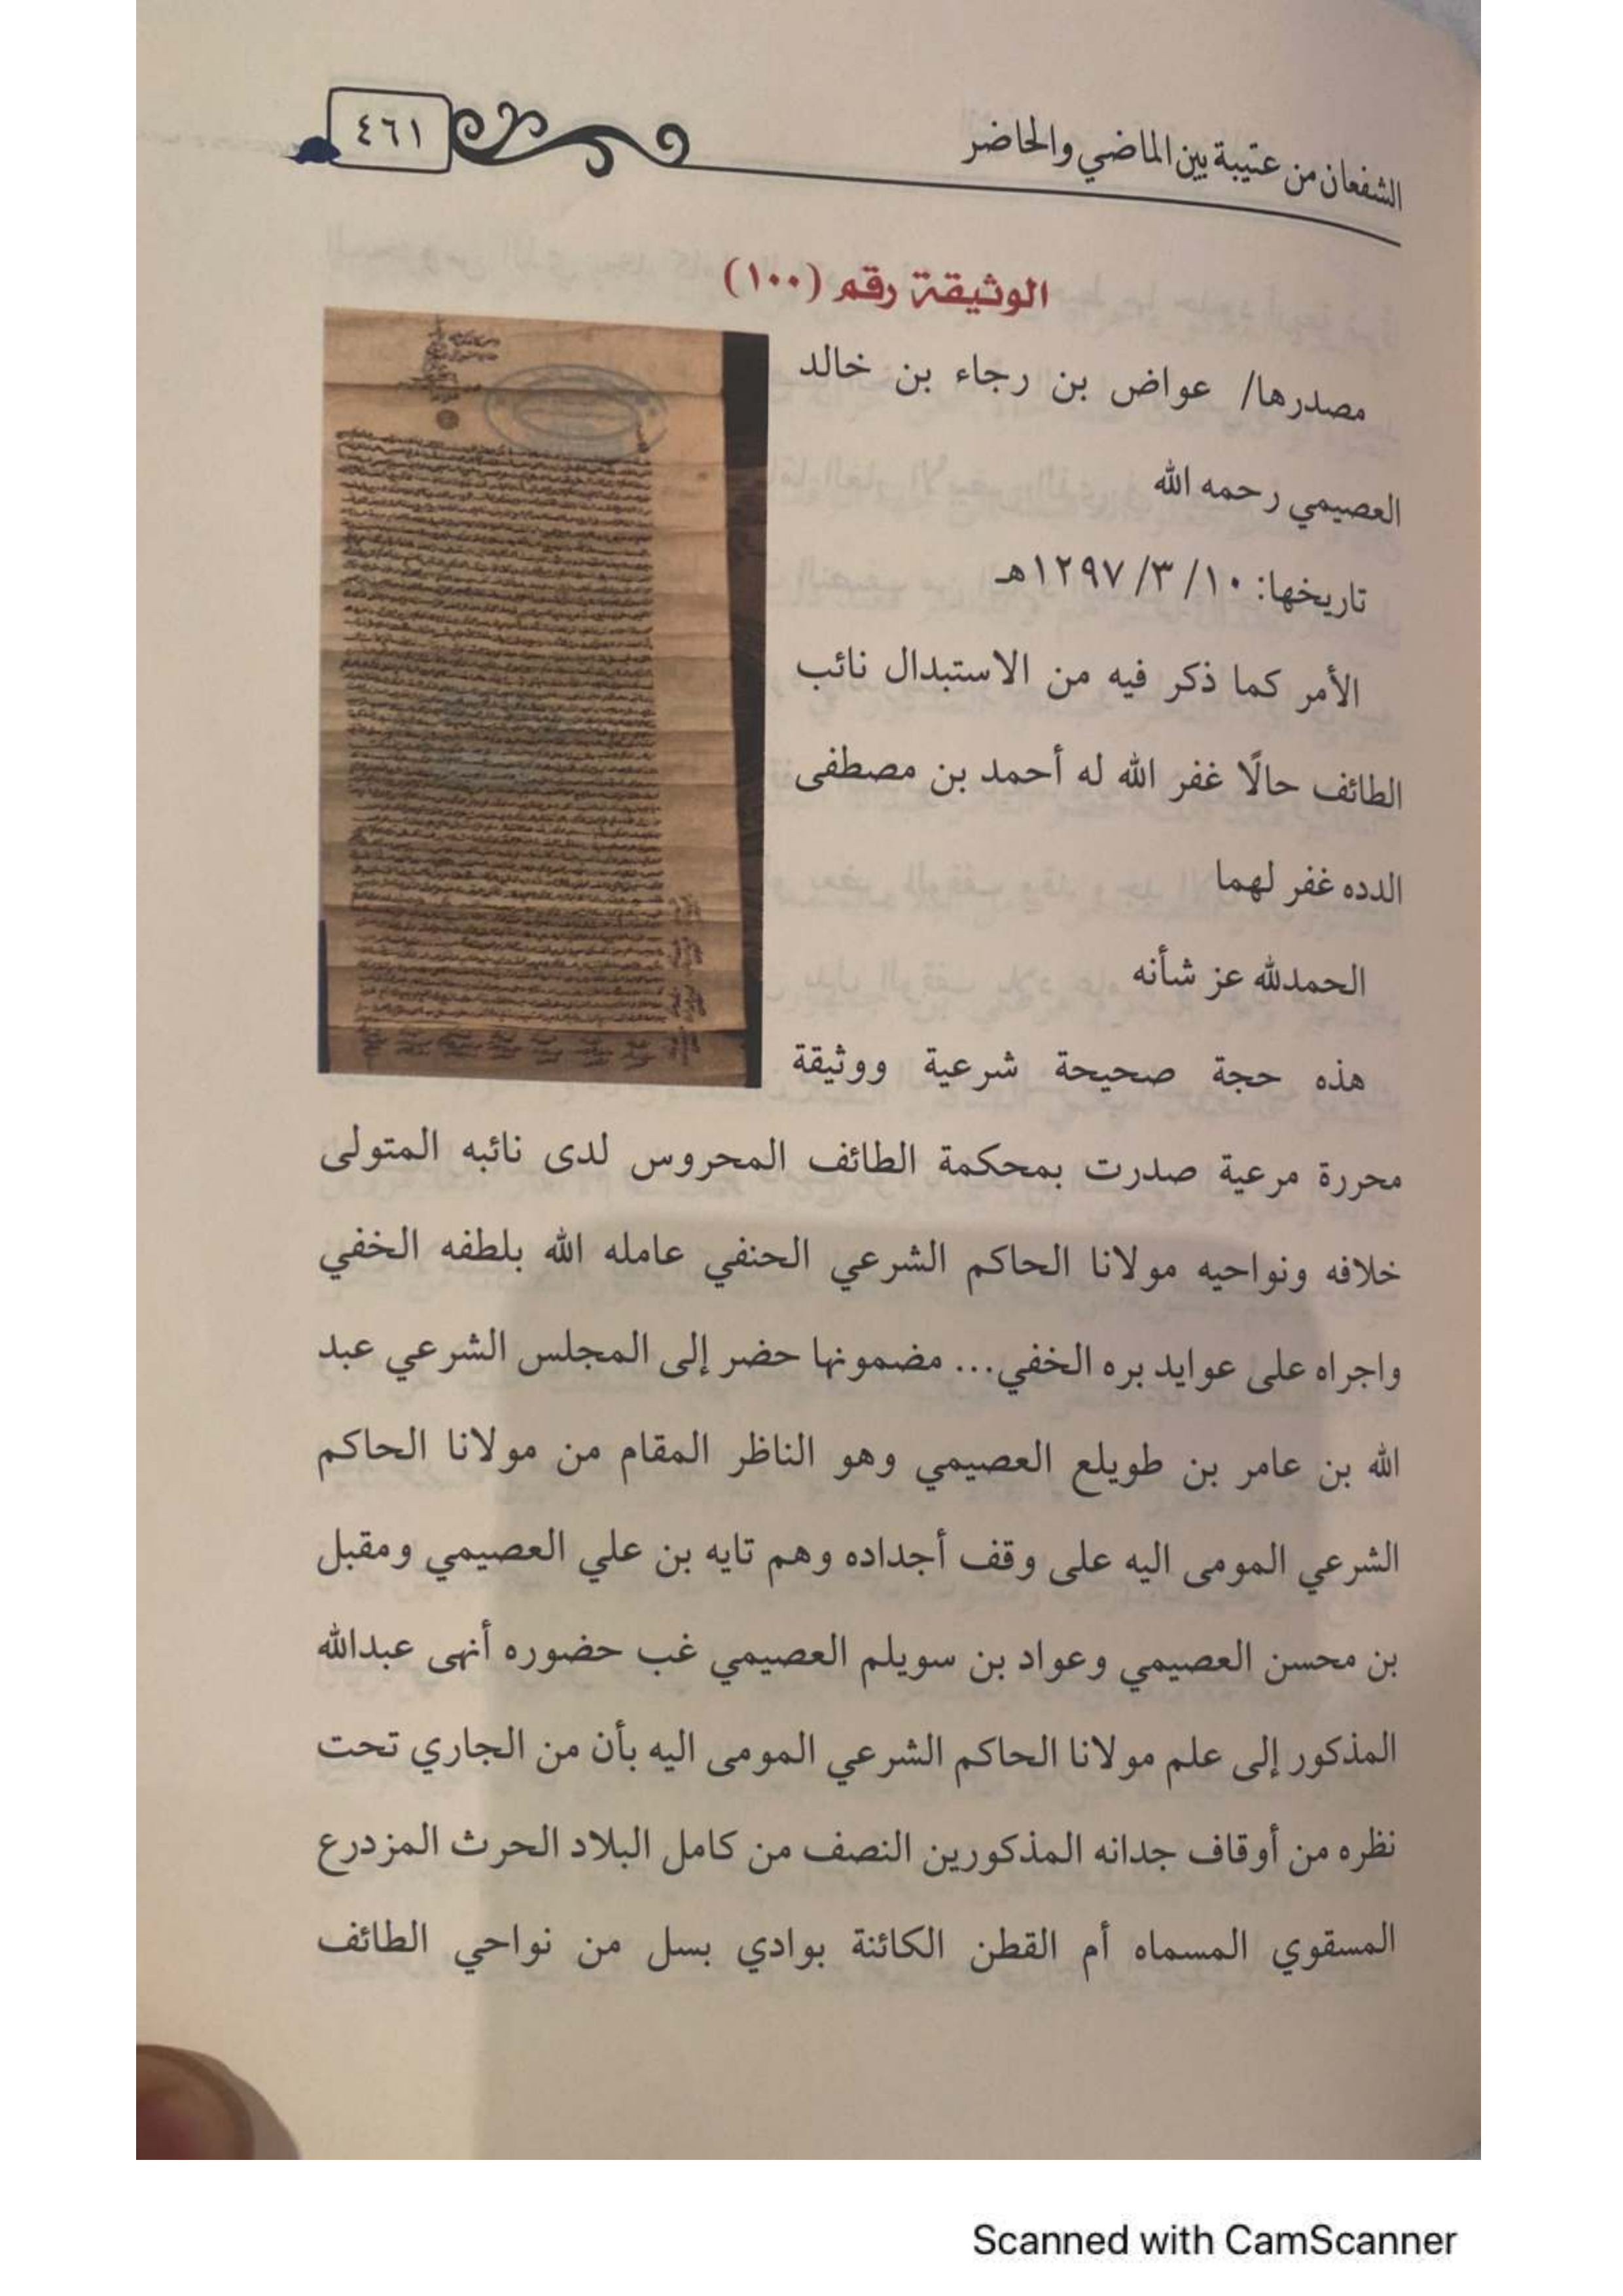 الشفعان من عتيبة بين الماضي والحاضر
٤٦١
الوثيقة رقم (١٠٠)
مصدرها/ عواض بن رجاء بن خالد
العصيمي رحمه الله
تاريخها: ١٠/ ٣/ ١٢٩٧هـ
الأمر كما ذكر فيه من الاستبدال نائب
الطائف حالًا غفر الله له أحمد بن مصطفى
الدده غفر لهما
الحمدلله عز شأنه
هذه حجة صحيحة شرعية ووثيقة
محررة مرعية صدرت بمحكمة الطائف المحروس لدى نائبه المتولى
خلافه ونواحيه مولانا الحاكم الشرعي الحنفي عامله الله بلطفه الخفي
واجراه على عوايد بره الخفي... مضمونها حضر إلى المجلس الشرعي عبد
الله بن عامر بن طويلع العصيمي وهو الناظر المقام من مولانا الحاكم
الشرعي المومى اليه على وقف أجداده وهم تايه بن علي العصيمي ومقبل
بن محسن العصيمي وعواد بن سويلم العصيمي غب حضوره أنهى عبدالله
المذكور إلى علم مولانا الحاكم الشرعي المومى اليه بأن من الجاري تحت
نظره من أوقاف جدانه المذكورين النصف من كامل البلاد الحرث المزدرع
المسقوي المسماه أم القطن الكائنة بوادي بسل من نواحي الطائف
Scanned with CamScanner